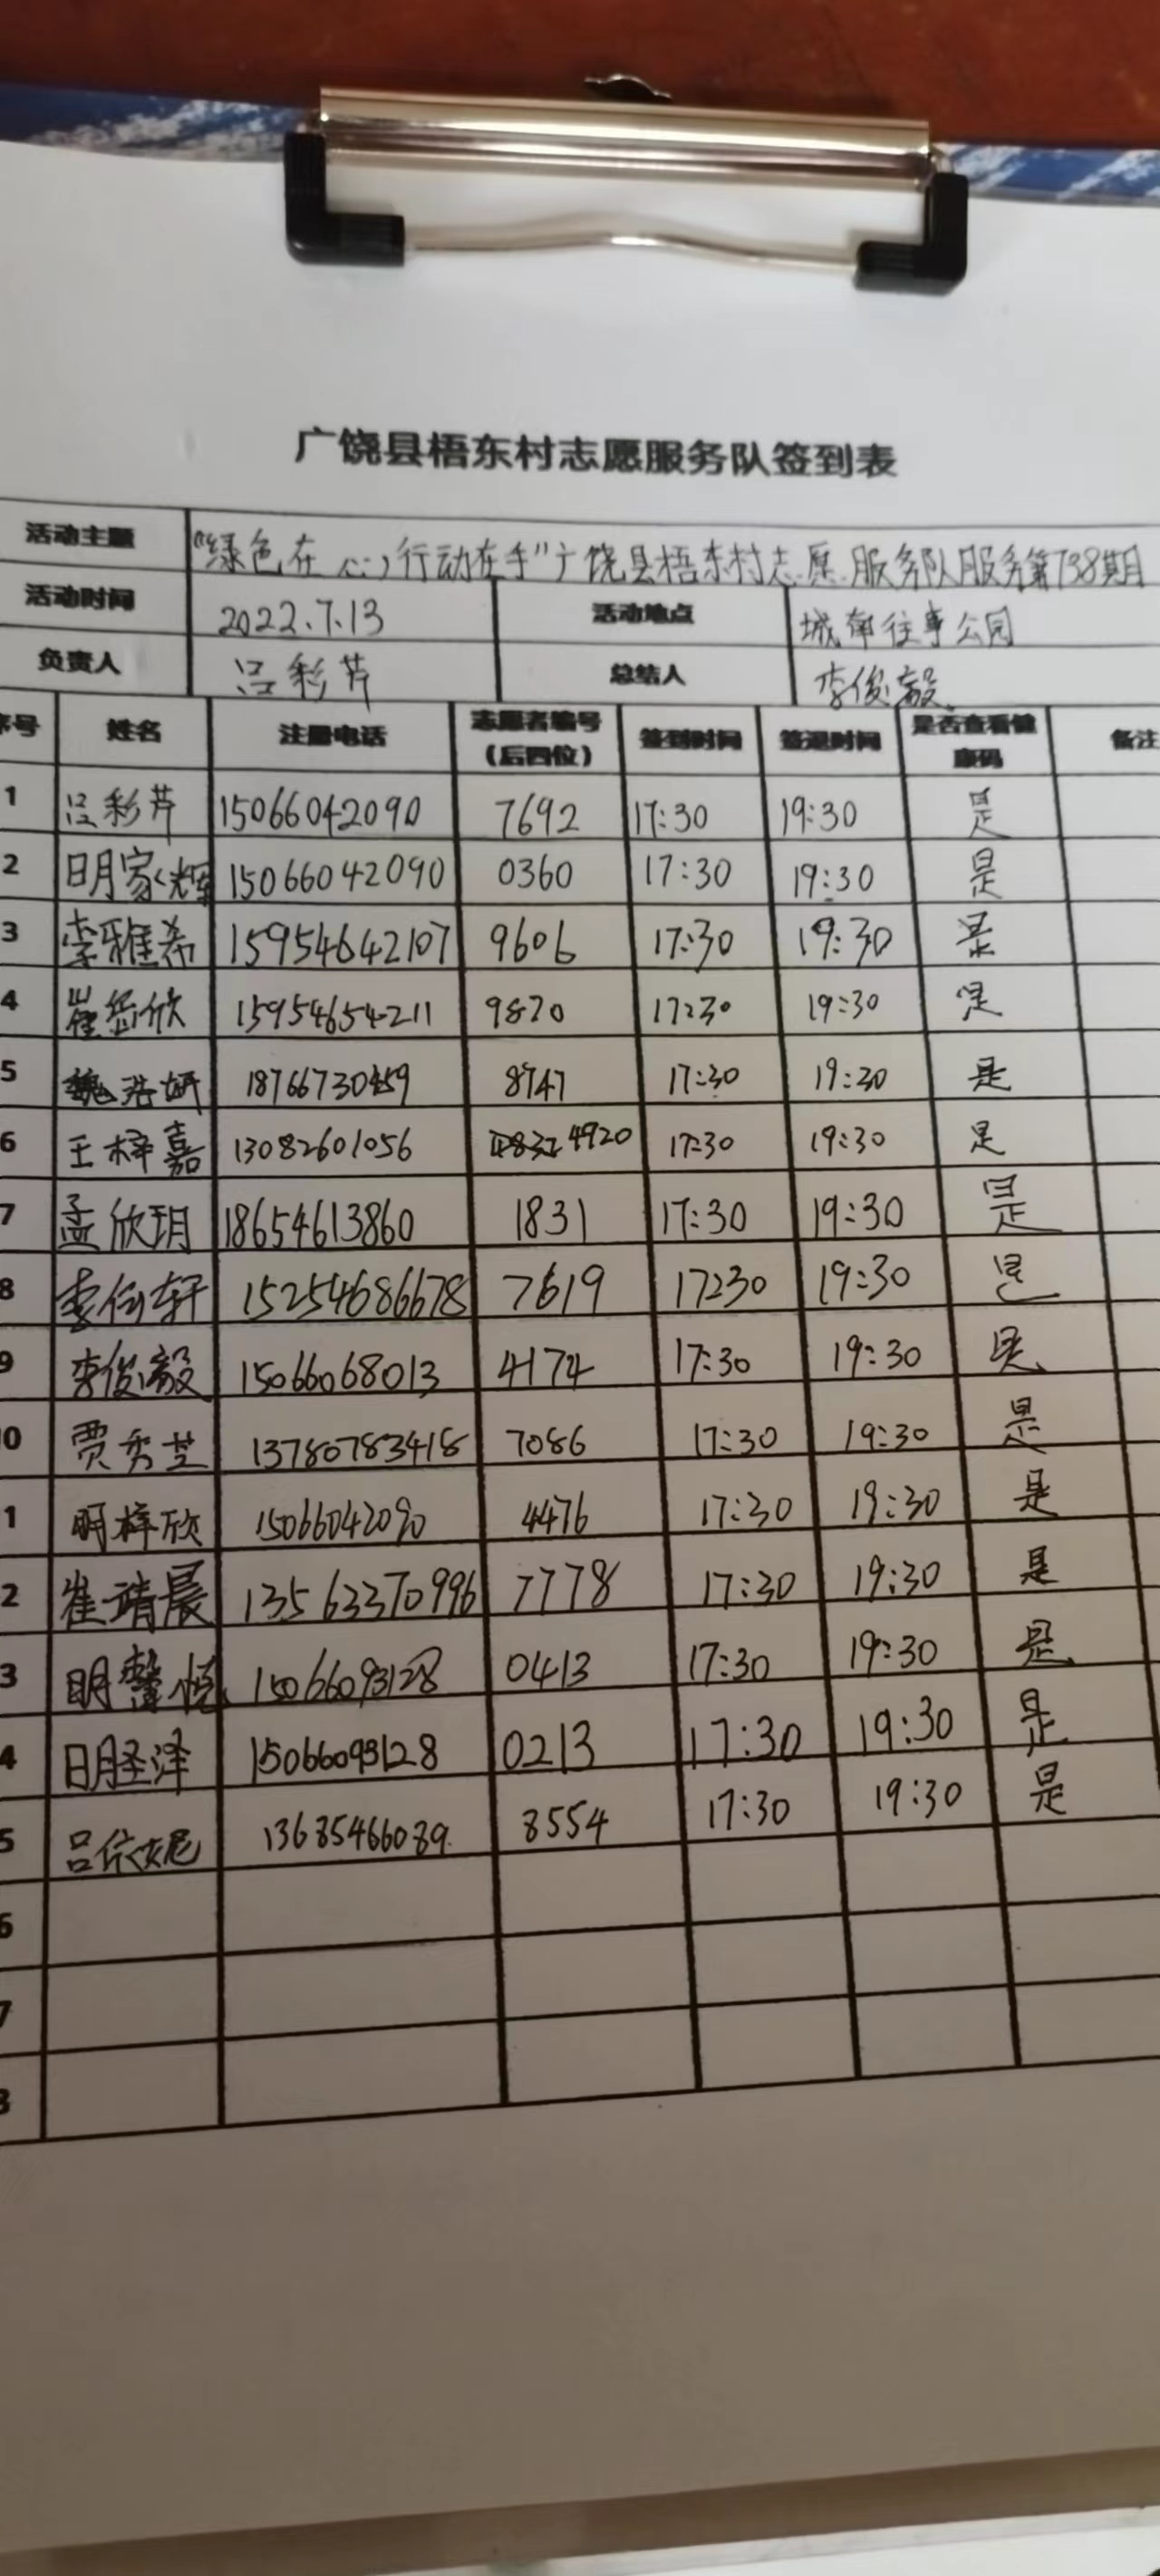 广饶县梧东村志愿服务队签到表
活动主题 “绿色在心,行动在手”广饶县梧东村志愿服务队服务第738期
活动时间 2022.7.13 活动地点 城南往事公园
负责人 吕彩芹 总结人 李俊毅
序号 姓名 注册电话 志愿者编号（后四位） 签到时间 签退时间 是否查看健康码 备注
1 吕彩芹 15066042090 7692 17:30 19:30 是
2 明家辉 15066042090 0360 17:30 19:30 是
3 李雅希 15954642107 9606 17:30 19:30 是
4 崔岳欣 15954654211 9820 17:30 19:30 是
5 魏浩妍 18766730459 8747 17:30 19:30 是
6 王梓嘉 13082601056 4920 17:30 19:30 是
7 孟欣玥 18654613860 1831 17:30 19:30 是
8 李轩 15254686678 7619 17:30 19:30 是
9 李俊毅 15066068013 4174 17:30 19:30 是
0 贾秀芝 13780783418 7086 17:30 19:30 是
1 明梓欣 15066042090 4476 17:30 19:30 是
2 崔靖晨 13563370996 7778 17:30 19:30 是
3 明馨悦 15066093128 0413 17:30 19:30 是
4 明圣泽 15066093128 0213 17:30 19:30 是
5 吕依妮 13685466089 8554 17:30 19:30 是
6
7
8